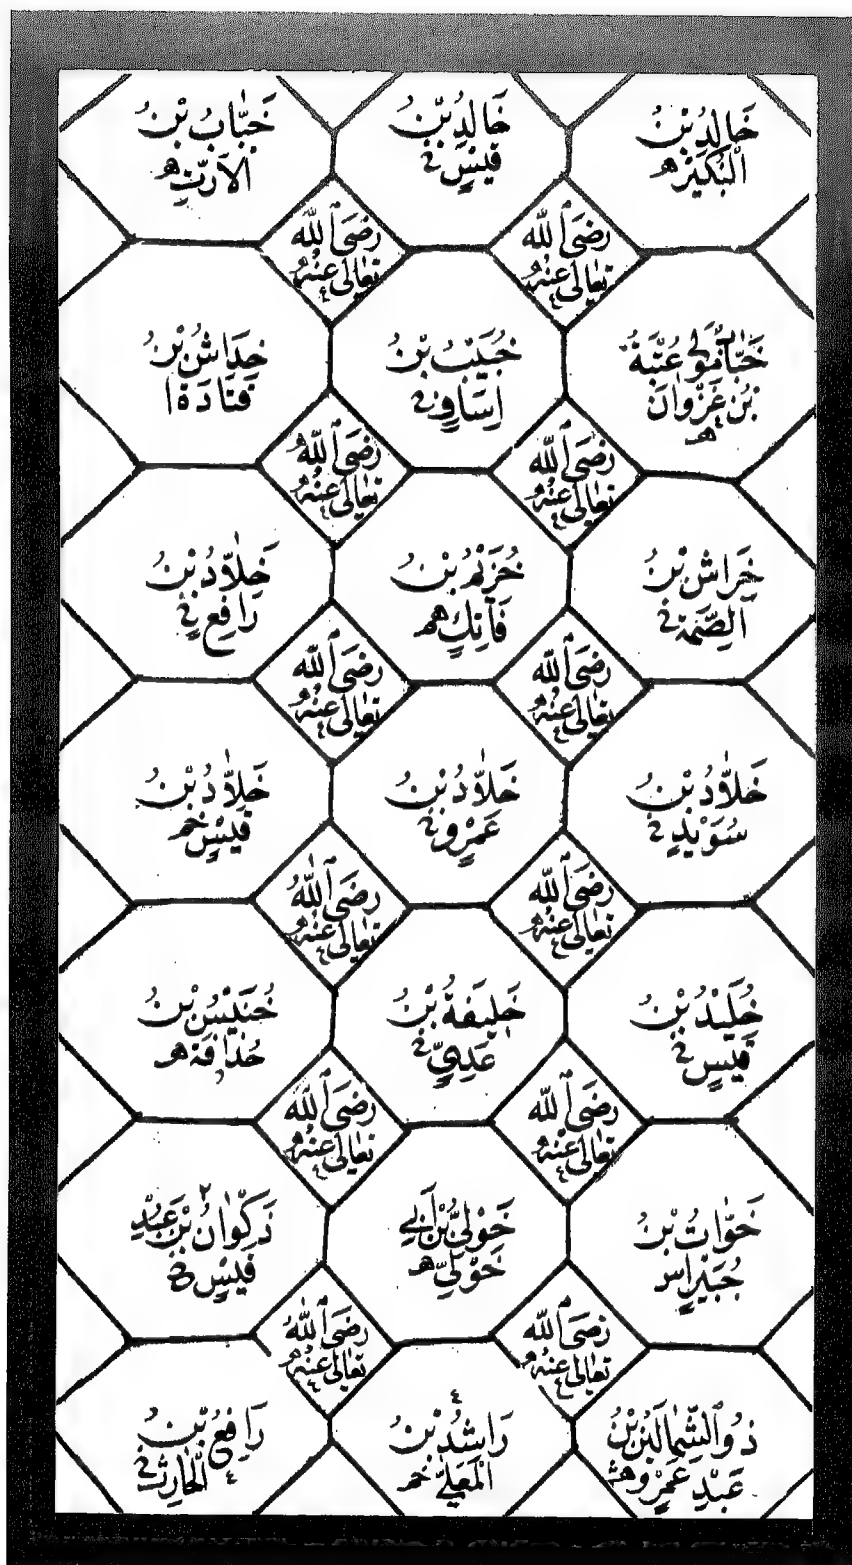 خَالِدُ بْنُ
الْبُكَيْرِ هـ
خَالِدُ بْنُ
قَيْسٍ خ
خَبَّابُ بْنُ
الْأَرَتِّ هـ
رَضِيَ اللّٰهُ
تَعَالٰى عَنْهُ
رَضِيَ اللّٰهُ
تَعَالٰى عَنْهُ
خَبَّابٌ مَوْلٰى عُتْبَةَ
بْنِ غَزْوَانَ
هـ
خُبَيْبُ بْنُ
اِسَافٍ خ
خِدَاشُ بْنُ
قَتَادَةَ ا
رَضِيَ اللّٰهُ
تَعَالٰى عَنْهُ
رَضِيَ اللّٰهُ
تَعَالٰى عَنْهُ
خِرَاشُ بْنُ
الصِّمَّةِ خ
خُرَيْمُ بْنُ
فَاتِكٍ هـ
خَلَّادُ بْنُ
رَافِعٍ خ
رَضِيَ اللّٰهُ
تَعَالٰى عَنْهُ
رَضِيَ اللّٰهُ
تَعَالٰى عَنْهُ
خَلَّادُ بْنُ
سُوَيْدٍ خ
خَلَّادُ بْنُ
عَمْرٍو خ
خَلَّادُ بْنُ
قَيْسٍ خم
رَضِيَ اللّٰهُ
تَعَالٰى عَنْهُ
رَضِيَ اللّٰهُ
تَعَالٰى عَنْهُ
خُلَيْدُ بْنُ
قَيْسٍ خ
خَلِيفَةُ بْنُ
عَدِيٍّ خ
خُنَيْسُ بْنُ
حُذَافَةَ هـ
رَضِيَ اللّٰهُ
تَعَالٰى عَنْهُ
رَضِيَ اللّٰهُ
تَعَالٰى عَنْهُ
خَوَّاتُ بْنُ
جُبَيْرٍ اس
خَوْلِيُّ بْنُ اَبِي
خَوْلِيٍّ هـ
ذَكْوَانُ بْنُ عَبْدِ
قَيْسٍ
رَضِيَ اللّٰهُ
تَعَالٰى عَنْهُ
رَضِيَ اللّٰهُ
تَعَالٰى عَنْهُ
ذُو الشِّمَالَيْنِ بْنُ
عَبْدِ عَمْرٍو هـش
رَاشِدُ بْنُ
الْمُعَلّٰى خم
رَافِعُ بْنُ
الْحَارِثِ خ